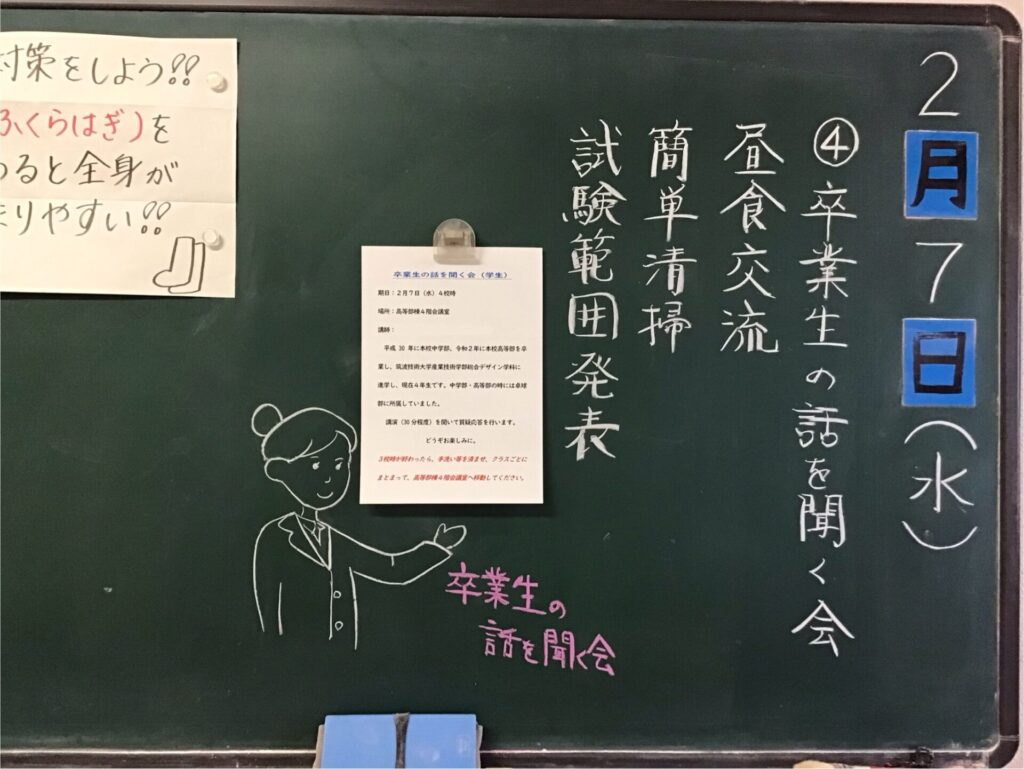 2月7日(水)
④卒業生の話を聞く会
昼食交流
簡単清掃
試験範囲発表
対策をしよう!!
ふくらはぎ)を
ると全身が
りやすい!!
卒業生の話を聞く会(学生)
期日:2月7日(水)4校時
場所:高等部棟4階会議室
講師:
平成 30 年に本校中学部、令和2年に本校高等部を卒
業し、筑波技術大学産業技術学部総合デザイン学科に
進学し、現在4年生です。中学部・高等部の時には卓球
部に所属していました。
講演(30分程度)を聞いて質疑応答を行います。
どうぞお楽しみに。
3校時が終わったら、手洗い等を済ませ、クラスごとに
まとまって、高等部棟4階会議室へ移動してください。
卒業生の
話を聞く会